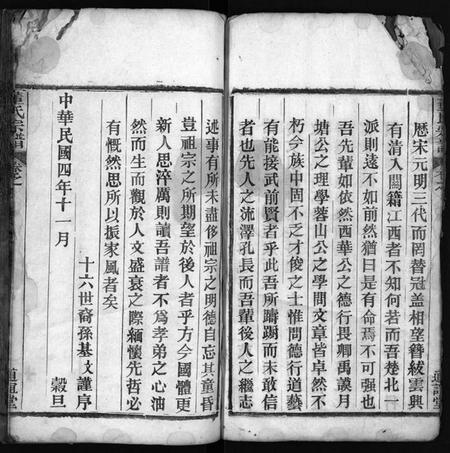 歷宋元明三代而罔替冠蓋相望簪紱雲興
有清入關籍江西者不知何若而吾楚北一
派則遠不如前然猶曰是有命焉不可強也
吾先輩如依然西華公之德行畏卿禹謨月
塘公之理學蓉山公之學問文章皆卓然不
朽今族中固不乏才俊之士惟問德行道藝
有能接武前賢者乎此吾所躊躇而未敢信
者也先人之流澤孔長而吾輩後人之繼志
述事有所未盡侈祖宗之明德自忘其童昏
豈祖宗之所期望於後人者乎方今國體更
新人思淬厲則讀吾譜者不為孝弟之心油
然而生而觀於人文盛衰之際緬懷先哲必
有慨然思所以振家風者矣
中華民國四年十一月
穀旦
十六世裔孫基文謹序
董氏宗譜